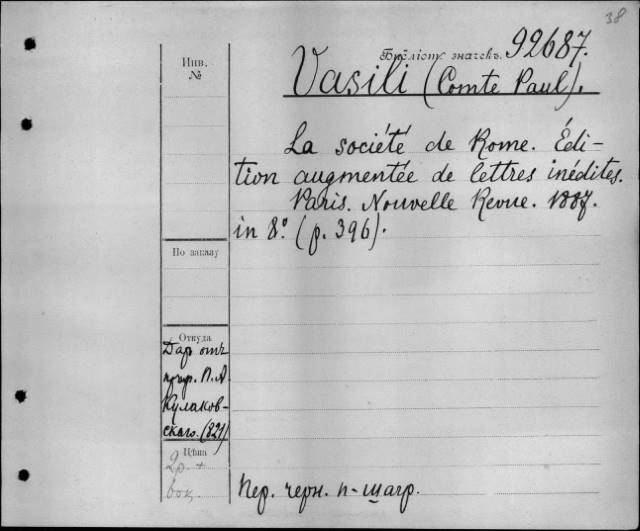 38
Библіотк. значекъ. 92687.
Инв.
№
Vasili (Comte Paul).
La société de Rome. Édi-
tion augmentée de lettres inédites.
Paris. Nouvelle Revue. 1887.
in 8.° (p. 396).
По заказу
Откуда
Даръ отъ
проф. П. А.
Кулаков-
скаго. (821)
Цѣна
2р. +
Пер. черн. п-шагр.